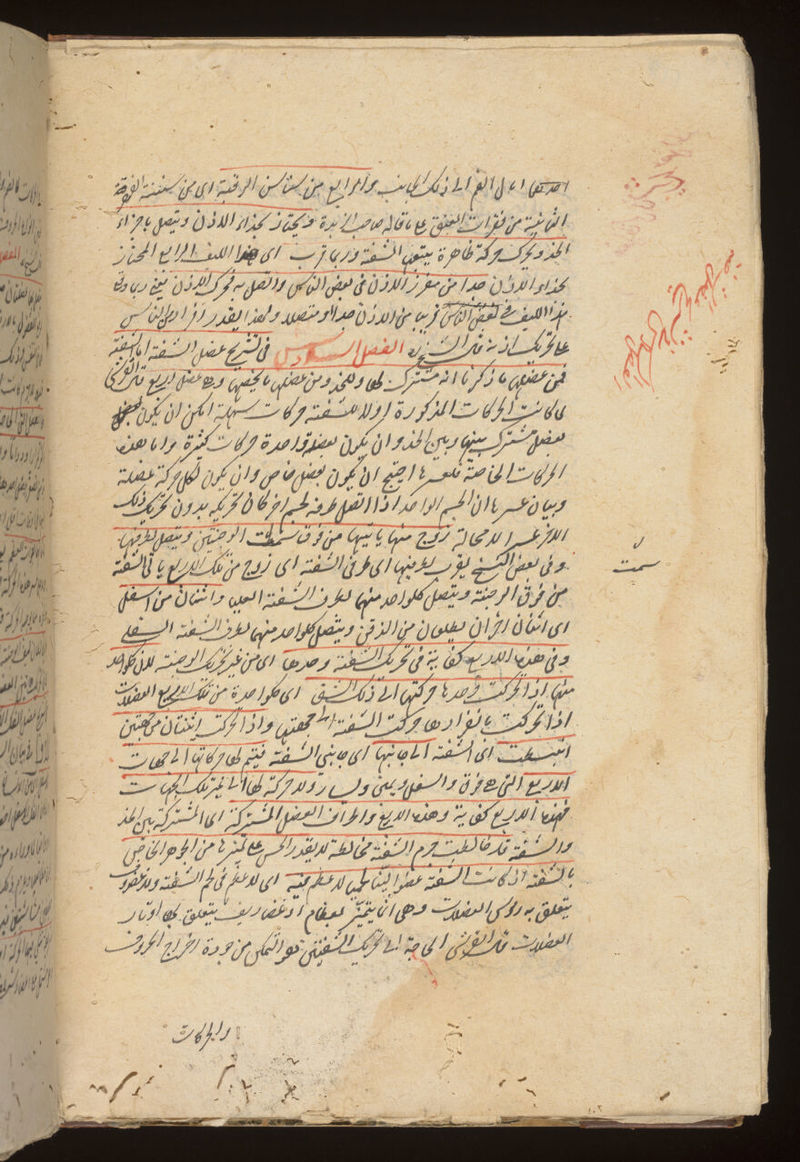 احدهما امال الفم الى ذلك الجانب والرابع من سناسن الرقبة اى من سنسنة الفقرة
الثانية من فقرات العنق على ما قاله صاحب الزبدة ويجتاز بحذاء الاذن ويتصل باجزاء
الخد ويحرك حركة ظاهرة يتبعها الشفة وربما قرب اى هذا الليف الرابع المجتاز
بحذاء الاذن جدا من مغرز الاذن فى بعض الناس واتصل به فحرك الاذن يعنى ربما وقع
هذا الليف فى بعض الناس قريبا من الاذن جدا او متصلا ولهذا يقدر افراد من الناس
على تحريك اذنه قال الشيخ الفصل السادس فى تشريح عضل الشفة اما الشفة
فمن عضلها ما ذكرنا انه مشترك لها وللخد ومن عضلها ما يخصها وهى عضل اربع قال القرشى
لما كانت الحركات المذكورة اولا للشفة حركات سهلة امكن ان يكون
بعضل مشترك بينها وبين الخد وان يكون بعضلة واحدة حركات كثيرة واما هذه
الحركات الخاصة فلعسرها احتيج ان يكون بعضل خاص وان يكون لكل حركة عضلة
وبيان عسرها ان الجسم الواحد اذا اتصل طرفه بجسم اخر كان تحريكه بدون تحريك ذلك
الاخر عسرا لا محالة زوج منها ياتيها من فوق سمت الوجنتين ويتصل بطرفها
وفى بعض النسخ بقرب طرفيها اى طرفى الشفة اى زوج من تلك الاربع ياتى الشفة
من فوق الوجنة ويتصل كلواحد منهما بطرف الشفة العليا واثنتان من اسفل
اى اثنتان اخران يطلعان من الذقن ويتصل كلواحد منهما بطرف الشفة السفلى
وفى هذه الاربع كفاية فى تحريك الشفة وحدها اى من غير تحريك الوجنة لان كلواحد
منها اذا تحركت وحدها حركتها الى ذلك الشق اى كلواحدة من تلك الاربع العضلات
اذا تحركت بانفرادها حركت الشفة الى جهتها واذا تحركت اثنتان من جهتين
انبسطت اى الشفة الى جانبيها اى جانبى الشفة فيتم لها حركاتها الى جهات
الاربع التى هى فوق والسفل ويمنى ويسار ولا حركة لها الى غير تلك الجهات
فهذه الاربع كفاية وهذه الاربع واطراف العضل المشتركة اى المشتركة بين الخد
والشفة قد خالطت جرم الشفة مخالطة لا يقدر الحس على تميزها من الجوهر الخاص
بالشفة اذ كانت الشفة عضوا لينا لحميا لا عظم فيه اى لا عظم فى لحم الشفة ولا غضروف
يتعلق به روس العضلات وهى انما يتميز بعظام او غضاريف يتعلق بها اوتار
العضلات قال القرشى الحاجة الى تحريك الشفتين هو التمكن من جودة اخراج الحروف
سمت
والحركات